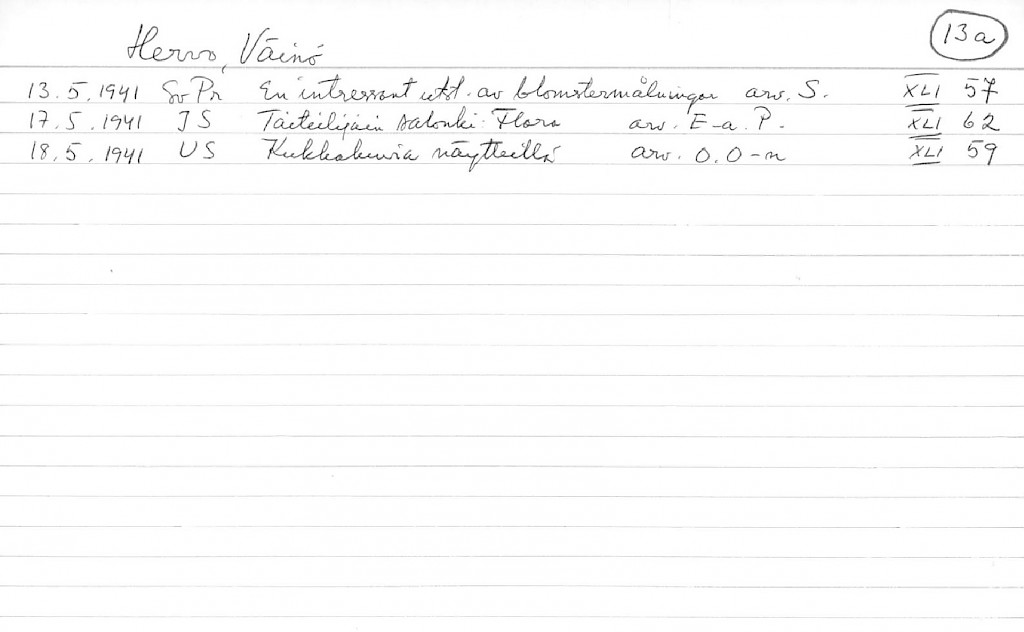 13a
Hervo, Väinö
13.5.1941 Sv Pr En intressant utst. av blomstermålningar arv. S. XLI 57
17.5.1941 IS Taiteilijain salonki: Flora arv. E-a. P. XLI 62
18.5.1941 US Kukkakuvia näytteillä arv. O.O-n XLI 59